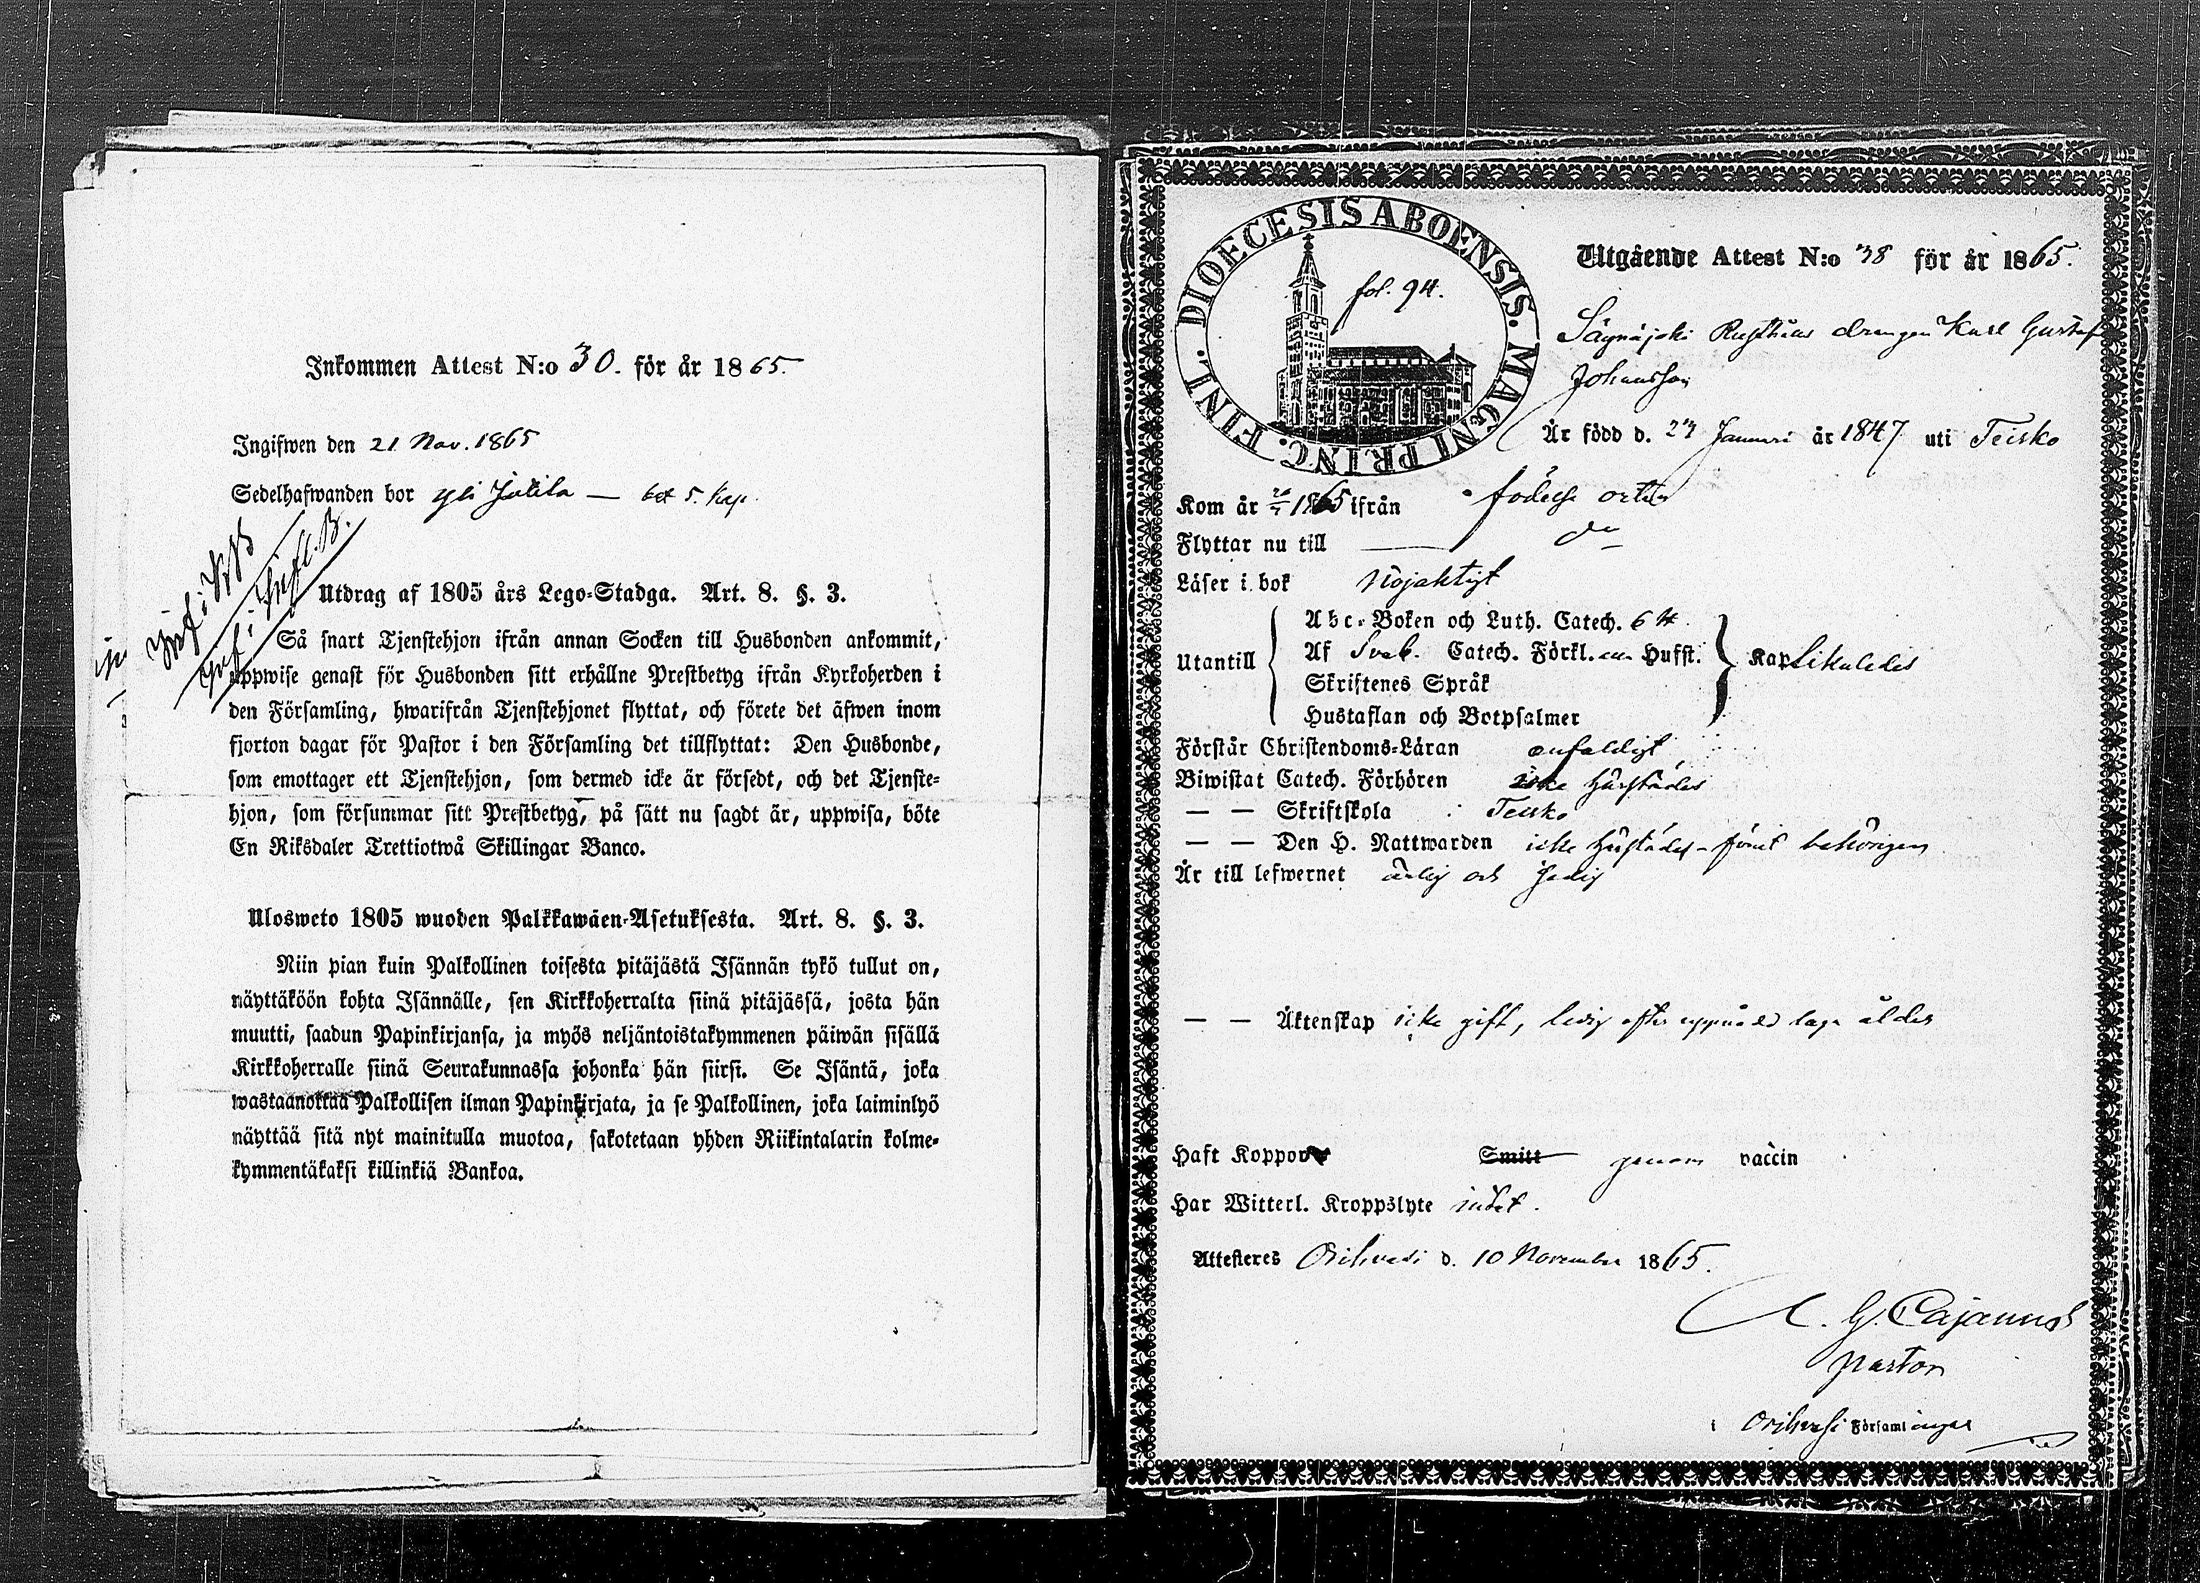 Inkommen Attest N:o 30. för år 1865.
Ingifwen den 21 Nov. 1865
Sedelhafwanden bor yli Jutila — bet 5. kap.
Inf i KB
Inf i Infl. B.
Utdrag af 1805 års Lego-Stadga. Art. 8. §. 3.
Så snart Tjenstehjon ifrån annan Socken till Husbonden ankommit,
uppwise genast för Husbonden sitt erhållne Prestbetyg ifrån Kyrkoherden i
den Församling, hwarifrån Tjenstehjonet flyttat, och förete det äfwen inom
fjorton dagar för Pastor i den Församling det tillflyttat: Den Husbonde,
som emottager ett Tjenstehjon, som dermed icke är försedt, och det Tjenste-
hjon, som försummar sitt Prestbetyg, på sätt nu sagdt är, uppwisa, böte
En Riksdaler Trettiotwå Skillingar Banco.
Ulosweto 1805 wuoden Palkkawäen-Asetuksesta. Art. 8. §. 3.
Niin pian kuin Palkollinen toisesta pitäjästä Isännän tykö tullut on,
näyttäköön kohta Isännälle, sen Kirkkoherralta siinä pitäjässä, josta hän
muutti, saadun Papinkirjansa, ja myös neljäntoistakymmenen päiwän sisällä
Kirkkoherralle siinä Seurakunnassa johonka hän siirsi. Se Isäntä, joka
wastaanottaa Palkollisen ilman Papinkirjata, ja se Palkollinen, joka laiminlyö
näyttää sitä nyt mainitulla muotoa, sakotetaan yhden Riikintalarin kolme-
kymmentäkaksi killinkiä Bankoa.
DIOECESIS ABOENSIS. MAGNI PRINC. FINL.
fol. 94.
Utgående Attest N:o 38 för år 1865.
Säynäjoki Rusthåls drengen Karl Gustaf
Johansson
Är född d. 27 Januari år 1847 uti Teisko
Kom år 1865 ifrån födelse orten
Flyttar nu till — do
Läser i bok Nöjaktigt
Utantill
Abc-Boken och Luth. Catech. 6 H.
Af Sveb. Catech. Förkl. Hufst. Kap Likaledes
Skriftenes Språk
Hustaflan och Botpsalmer
Förstår Christendoms-Läran enfaldigt
Biwistat Catech. Förhören icke härstädes
— — Skriftskola i Teisko
— — Den H. Nattwarden icke härstädes
Är till lefwernet ärlig och
— — Äktenskap icke gift, ledig efter uppnådd laga ålder
Haft Koppor Smitt genom vaccin
Har Witterl. Kroppslyte intet.
Attesteres Orihvesi d. 10 November 1865.
A. G. Cajanus
pastor
i Orihvesi Församlingar